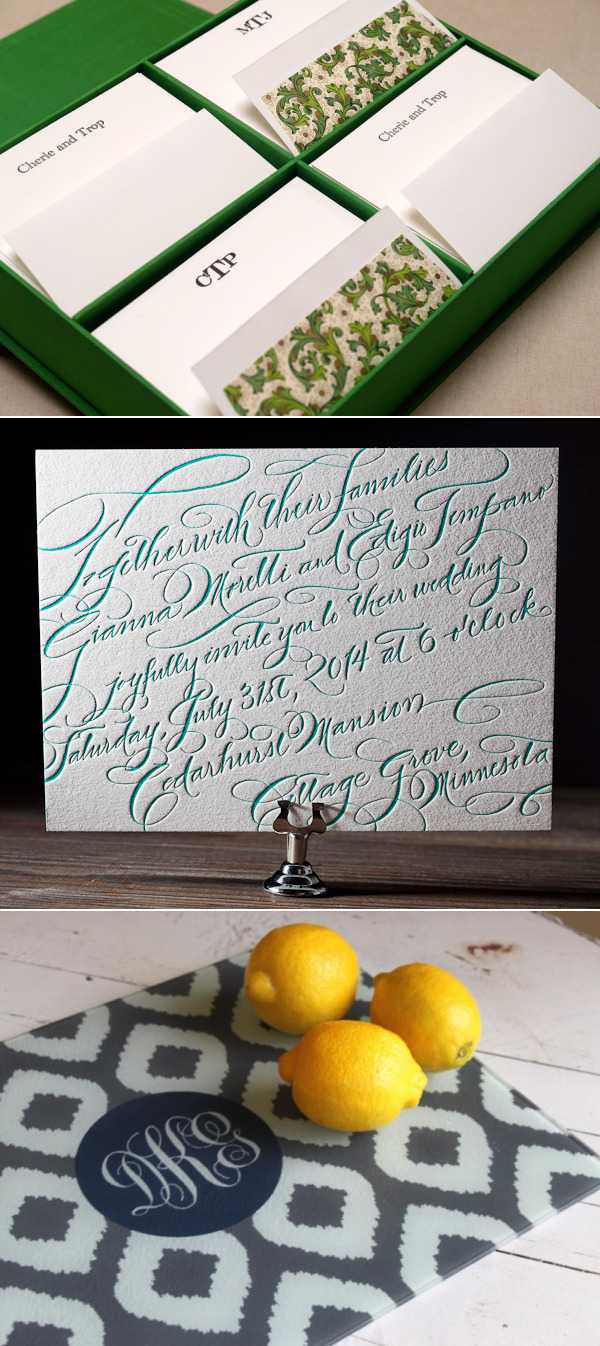 MTJ
Cherie and Trop
Cherie and Trop
CTP
Together with their families
Gianna Morelli and Edigio Tempano
joyfully invite you to their wedding
Saturday, July 31st, 2014 at 6 o'clock
Cedarhurst Mansion
Cottage Grove,
Minnesota
DKS